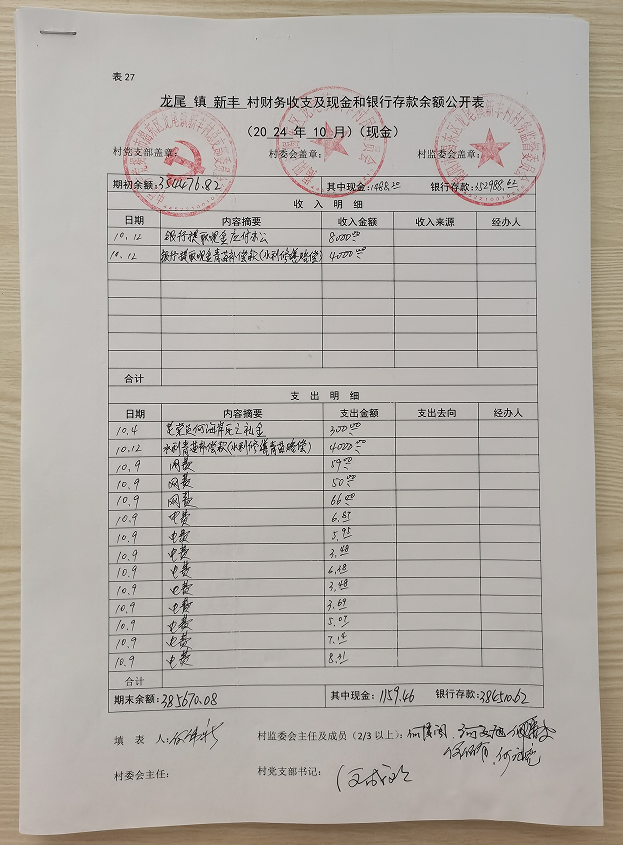 表 27
龙尾 镇 新丰 村财务收支及现金和银行存款余额公开表
(20 24 年 10 月)(现金)
村党支部盖章: 村委会盖章: 村监委会盖章:
期初余额:354476.82 其中现金:1488.20 银行存款:352988.62
收 入 明 细
日期 内容摘要 收入金额 收入来源 经办人
10.12 银行提取现金应付办公 8000.00
10.12 银行提取现金青苗补偿款(水利修缮赔偿) 4000.00
合计
支 出 明 细
日期 内容摘要 支出金额 支出去向 经办人
10.4 老党员何海岸死亡礼金 300.00
10.12 水利青苗补偿款(水利修缮青苗赔偿) 4000.00
10.9 网费 59.00
10.9 网费 50.00
10.9 网费 66.00
10.9 电费 6.85
10.9 电费 5.95
10.9 电费 3.48
10.9 电费 6.48
10.9 电费 3.48
10.9 电费 3.69
10.9 电费 5.07
10.9 电费 7.14
10.9 电费 8.31
合计
期末余额:385670.08 其中现金:1159.46 银行存款:384510.62
填 表 人: 村监委会主任及成员(2/3 以上):
村委会主任: 村党支部书记: